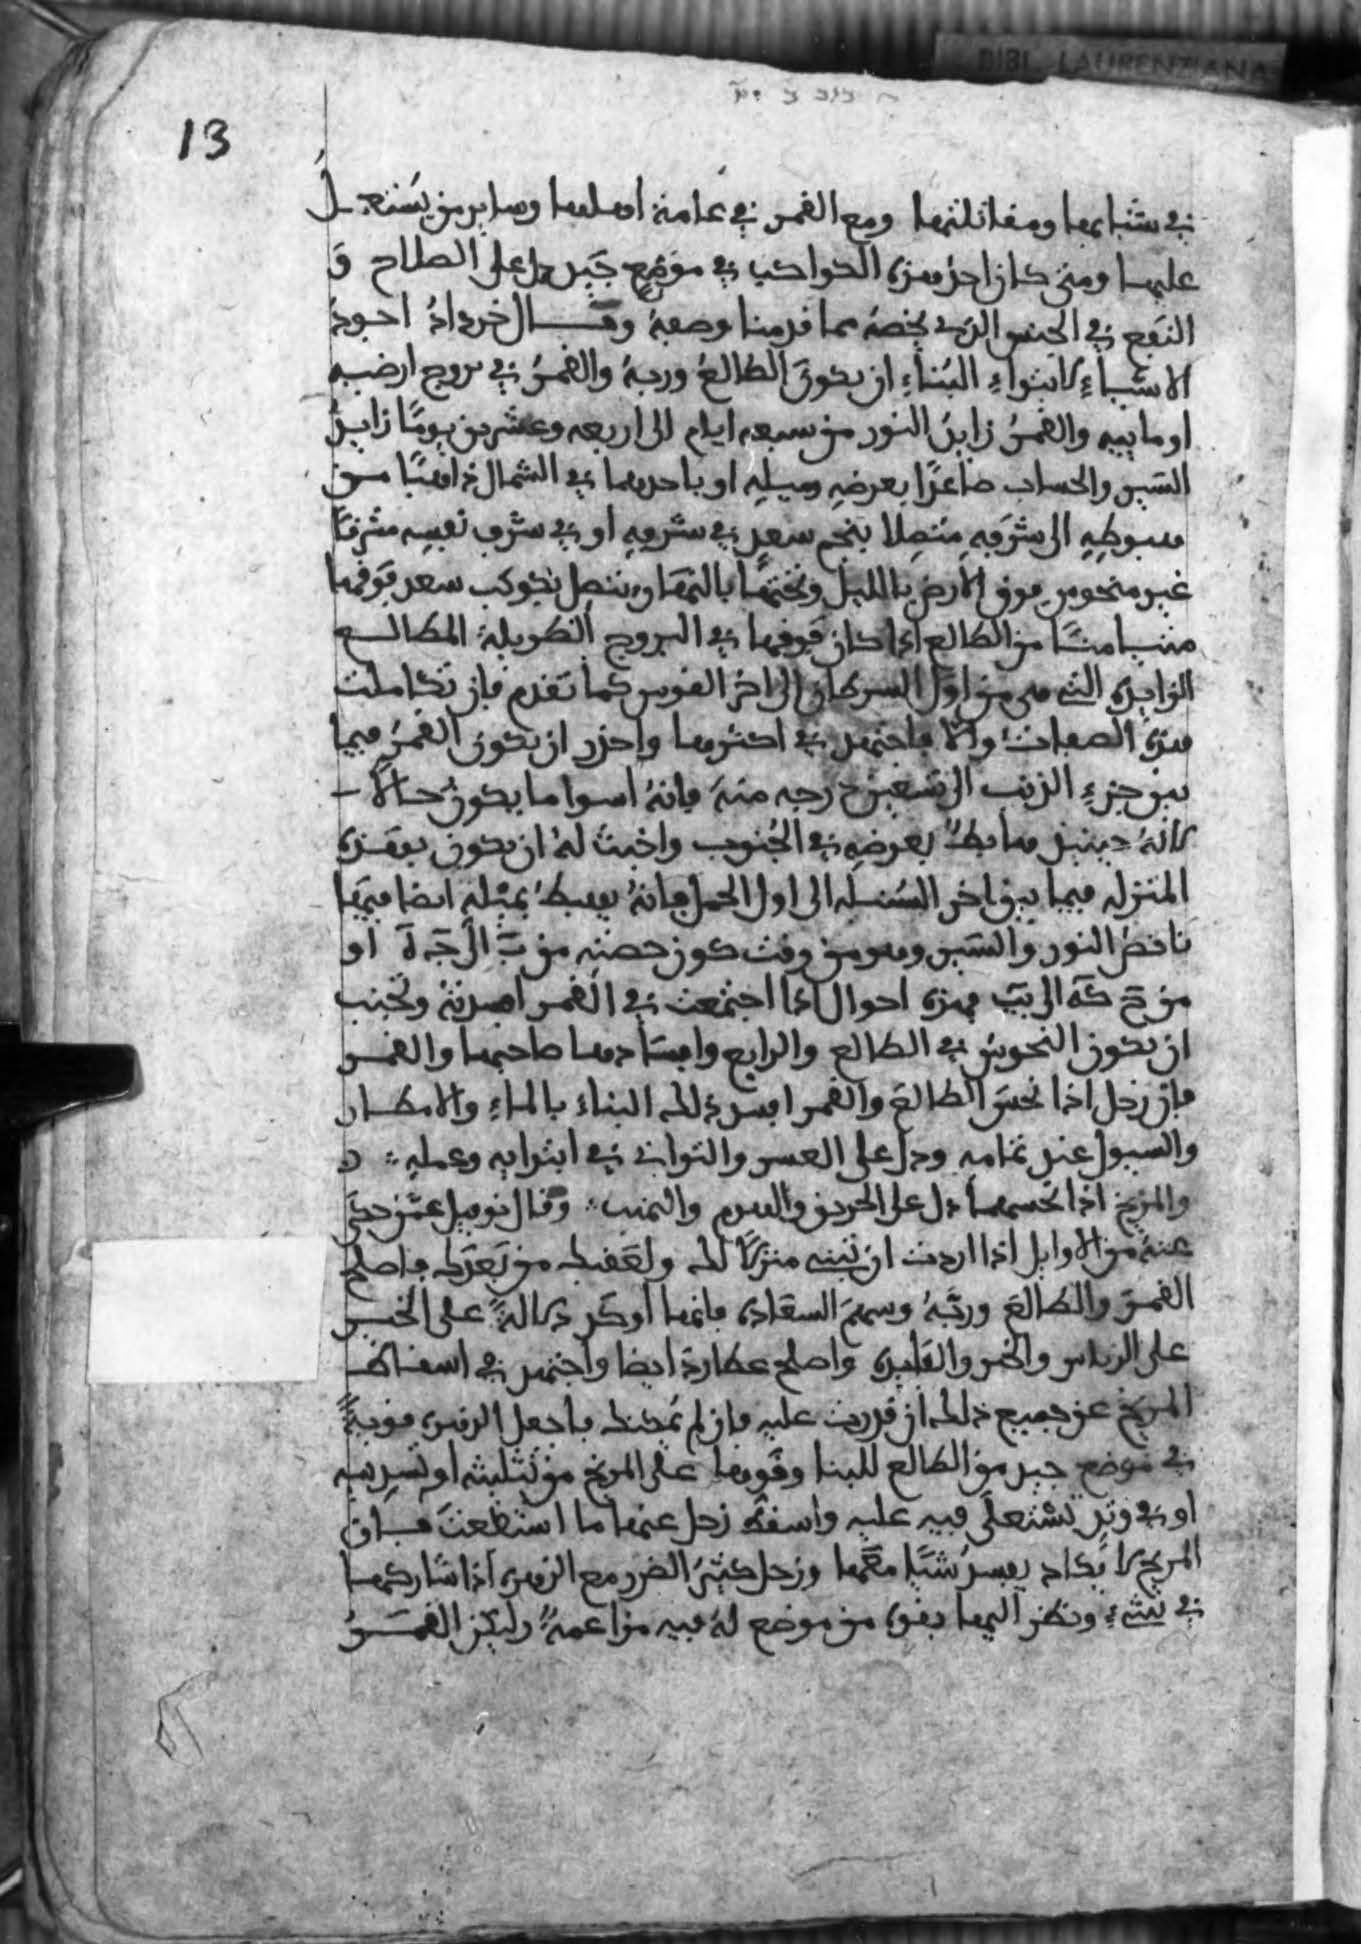 BIBL. LAURENZIANA
13
في شبابها ومقاتلتها ومع القمر في عامة اهلها وساير من يستعمل
عليها ومتى كان احد هذه الكواكب في موضع جيد دل على الصلاح و
النفع في الجنس الذي يخصه مما قدمنا وصفه وقال خرداذ اجود
الاشياء لابتداء البناء ان يكون الطالع وربه والقمر في بروج ارضيه
او ماييه والقمر زايد النور من سبعه ايام الى اربعه وعشرين يوما زايد
السير والحساب صاعدا بعرضه وميله او باحدهما في الشمال ذاهبا من
هبوطه الى شرفه متصلا بنجم سعد في شرفه او في شرف نفسه مشرقا
غير منحوس فوق الارض بالليل وتحتها بالنهار ويتصل بكوكب سعد فوقها
متيامنا من الطالع اذا كان فوقها في البروج الطويلة المطالع
الزايدة التي هي من اول السرطان الى اخر القوس كما تقدم فان تكاملت
هذه الصفات والا فاجتهد في اكثرها واحذر ان يكون القمر فيما
بين جزء الذنب الى تسعين درجه منه فانه اسوا ما يكون حالا
لانه حينيذ هابط بعرضه في الجنوب واخبث له ان يكون بهذه
المنزله فيما بين اخر السنبله الى اول الحمل فانه يهبط بميله ايضا فيها
ناقص النور والسير وهو من وقت كون حصته من الى او
من الى فهذه احوال اذا اجتمعت في القمر افسدته وتجنب
ان يكون النحوس في الطالع والرابع وافسادها صاحبها والقمر
فان زحل اذا نحس الطالع والقمر افسد ذلك البناء بالماء والامطار
والسيول عند تمامه ودل على العسر والتواني في ابتدايه وعمله
والمريخ اذا نحسهما دل على الحريق والهدم والنهب وقال نوفيل عمن حكى
عنه من الاوايل اذا اردت ان تبني منزلا لك ولعقبك من بعدك فاصلح
القمر والطالع وربه وسهم السعادة فانها اوكد دلالة على الخير
على الرباس والخير والفايدة واصلح عطارد ايضا واجتهد في اسقاط
المريخ عن جميع ذلك ان قدرت عليه فان لم يمكنك فاجعل الزهرة قوية
في موضع جيد من الطالع للبنا وقوها على المريخ من تثليثه او تسديسه
او في وتد تستعلي فيه عليه واسقط زحل عنها ما استطعت فان
المريخ لا يكاد يفسد شيا معها وزحل كثير الضرر مع الزهرة اذا شاركها
في شيء ونظر اليها بقوة من موضع له فيه مزاعمة وليكن القمر